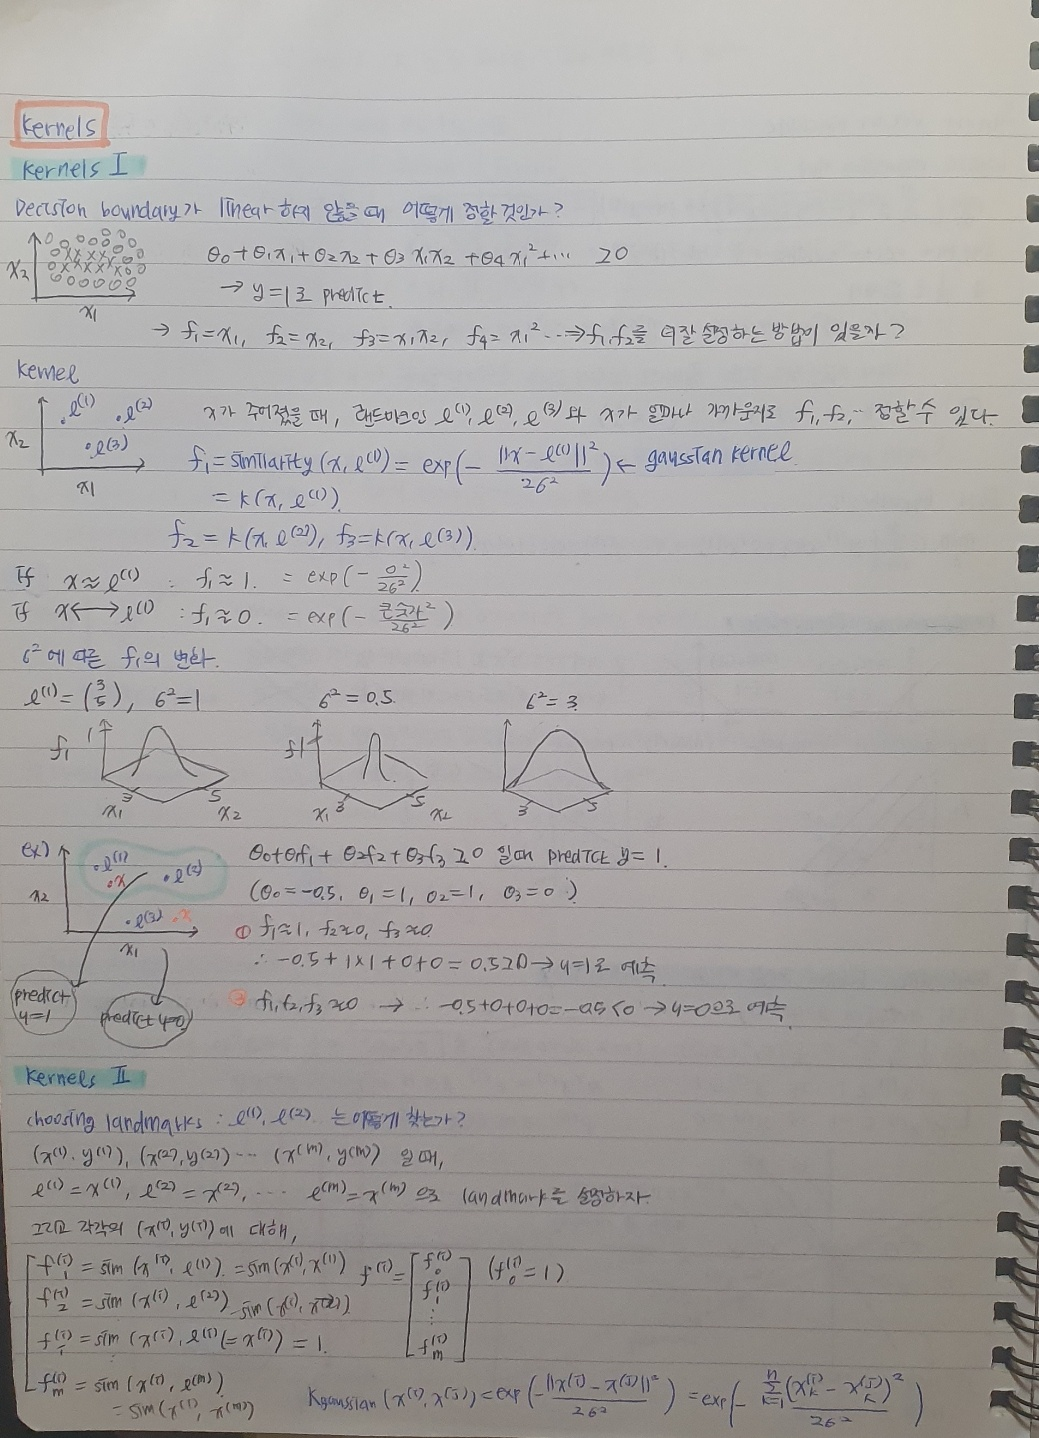 Kernels
Kernels I
Decision boundary가 linear하지 않을 때 어떻게 정할 것인가?
x₂
x₁
θ₀ + θ₁x₁ + θ₂x₂ + θ₃x₁x₂ + θ₄x₁² + ⋯ ≥ 0
→ y=1로 predict.
→ f₁=x₁, f₂=x₂, f₃=x₁x₂, f₄=x₁² ⋯ ⇒ f₁, f₂를 더 잘 설정하는 방법이 있을까?
Kernel
l⁽¹⁾ l⁽²⁾
l⁽³⁾
x₂
x₁
x가 주어졌을 때, 랜드마크인 l⁽¹⁾, l⁽²⁾, l⁽³⁾와 x가 얼마나 가까운지로 f₁, f₂, ⋯ 정할 수 있다.
f₁ = similarity(x, l⁽¹⁾) = exp(- ||x - l⁽¹⁾||² / 2σ²) ← gaussian kernel.
= k(x, l⁽¹⁾).
f₂ = k(x, l⁽²⁾), f₃ = k(x, l⁽³⁾).
If x ≈ l⁽¹⁾ : f₁ ≈ 1. = exp(- 0² / 2σ²)
If x ↔ l⁽¹⁾ : f₁ ≈ 0. = exp(- 큰숫자² / 2σ²)
σ²에 따른 f₁의 변화.
l⁽¹⁾ = (3 5), σ²=1 σ²=0.5. σ²=3.
f₁ 1 3 5 x₁ x₂
f₁ 3 5 x₁ x₂
3 5
ex)
x₂
l⁽¹⁾ x l⁽²⁾
l⁽³⁾ x
x₁
predict y=1
predict y=0
θ₀ + θ₁f₁ + θ₂f₂ + θ₃f₃ ≥ 0 일때 predict y=1.
(θ₀=-0.5, θ₁=1, θ₂=1, θ₃=0)
① f₁≈1, f₂≈0, f₃≈0.
∴ -0.5 + 1×1 + 0 + 0 = 0.5 ≥ 0 → y=1로 예측
② f₁, f₂, f₃ ≈ 0 → ∴ -0.5+0+0+0 = -0.5 < 0 → y=0으로 예측
Kernels II
choosing landmarks : l⁽¹⁾, l⁽²⁾ 는 어떻게 찾는가?
(x⁽¹⁾, y⁽¹⁾), (x⁽²⁾, y⁽²⁾) ⋯ (x⁽ᵐ⁾, y⁽ᵐ⁾) 일 때,
l⁽¹⁾ = x⁽¹⁾, l⁽²⁾ = x⁽²⁾, ⋯ l⁽ᵐ⁾ = x⁽ᵐ⁾ 으로 landmark를 설정하자.
그리고 각각의 (x⁽ⁱ⁾, y⁽ⁱ⁾)에 대해,
f₁⁽ⁱ⁾ = sim(x⁽ⁱ⁾, l⁽¹⁾). = sim(x⁽ⁱ⁾, x⁽¹⁾)
f₂⁽ⁱ⁾ = sim(x⁽ⁱ⁾, l⁽²⁾) = sim(x⁽ⁱ⁾, x⁽²⁾)
fᵢ⁽ⁱ⁾ = sim(x⁽ⁱ⁾, l⁽ⁱ⁾(=x⁽ⁱ⁾)) = 1.
⋮
fₘ⁽ⁱ⁾ = sim(x⁽ⁱ⁾, l⁽ᵐ⁾).
= sim(x⁽ⁱ⁾, x⁽ᵐ⁾)
f⁽ⁱ⁾ = [f₀⁽ⁱ⁾ f₁⁽ⁱ⁾ ⋮ fₘ⁽ⁱ⁾] (f₀⁽ⁱ⁾ = 1)
Kgaussian(x⁽ⁱ⁾, x⁽ʲ⁾) = exp(- ||x⁽ⁱ⁾ - x⁽ʲ⁾||² / 2σ²) = exp(- Σₖ₌₁ⁿ (xₖ⁽ⁱ⁾ - xₖ⁽ʲ⁾)² / 2σ²)